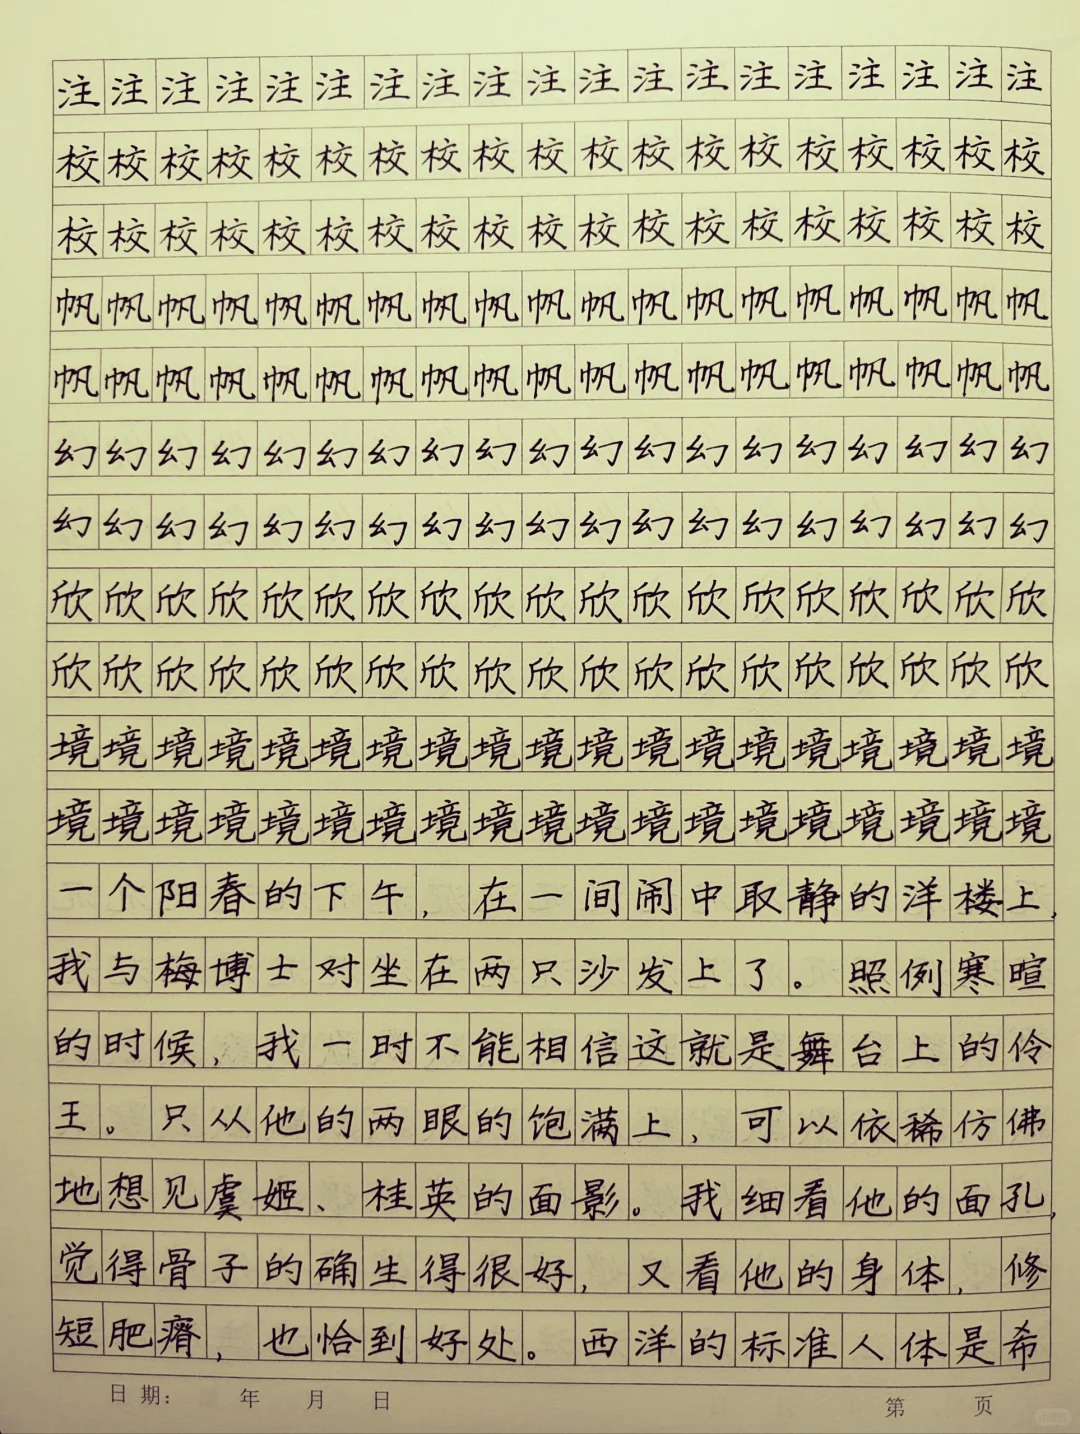 注注注注注注注注注注注注注注注注注注注
校校校校校校校校校校校校校校校校校校校
校校校校校校校校校校校校校校校校校校校
帆帆帆帆帆帆帆帆帆帆帆帆帆帆帆帆帆帆帆
帆帆帆帆帆帆帆帆帆帆帆帆帆帆帆帆帆帆帆
幻幻幻幻幻幻幻幻幻幻幻幻幻幻幻幻幻幻幻
幻幻幻幻幻幻幻幻幻幻幻幻幻幻幻幻幻幻幻
欣欣欣欣欣欣欣欣欣欣欣欣欣欣欣欣欣欣欣
欣欣欣欣欣欣欣欣欣欣欣欣欣欣欣欣欣欣欣
境境境境境境境境境境境境境境境境境境境
境境境境境境境境境境境境境境境境境境境
一个阳春的下午，在一间闹中取静的洋楼上，
我与梅博士对坐在两只沙发上了。照例寒暄
的时候，我一时不能相信这就是舞台上的伶
王。只从他的两眼的饱满上，可以依稀仿佛
地想见虞姬、桂英的面影。我细看他的面孔，
觉得骨子的确生得很好，又看他的身体，修
短肥瘠，也恰到好处。西洋的标准人体是希
日期： 年 月 日 第 页